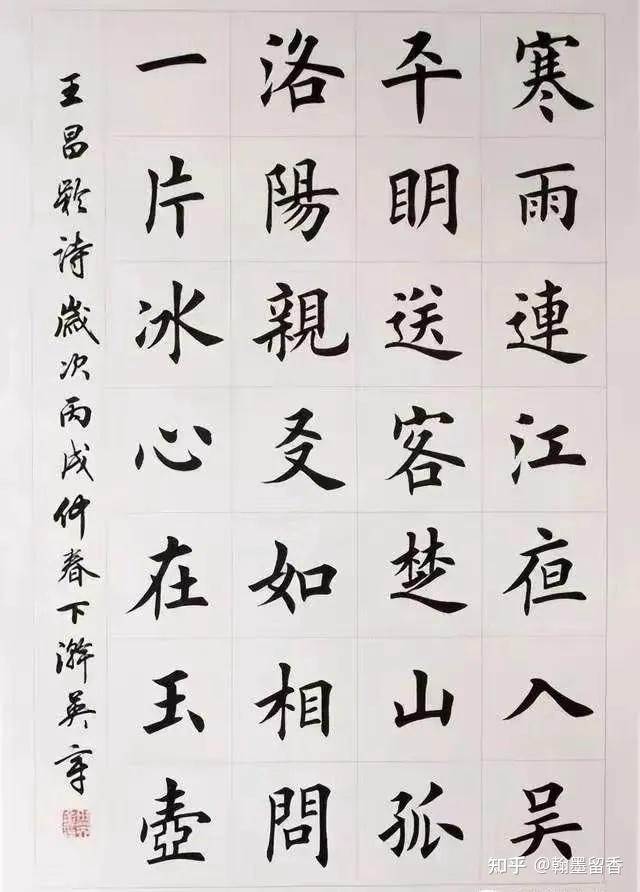 寒雨連江夜入吴
平明送客楚山孤
洛陽親友如相問
一片冰心在玉壺
王昌齡詩歲次丙戌仲春下澣英章
知乎 @翰墨留香